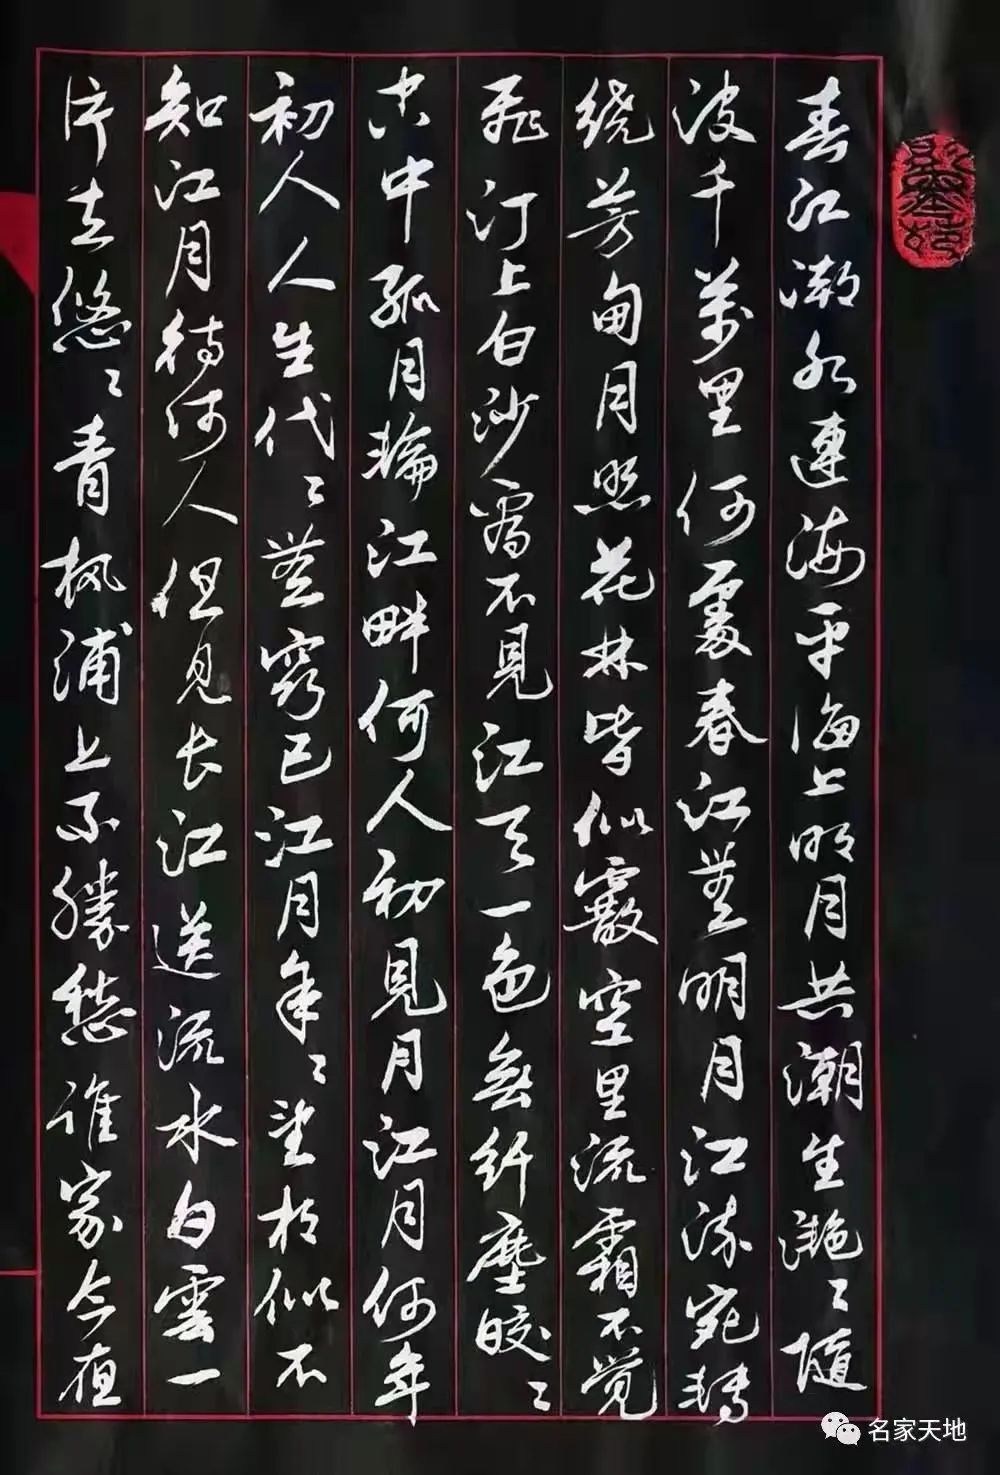 春江潮水連海平海上明月共潮生灩〻隨
波千萬里何處春江無明月江流宛轉
绕芳甸月照花林皆似霰空里流霜不觉
飛汀上白沙看不見江天一色無纤塵皎〻
空中孤月輪江畔何人初見月江月何年
初人人生代〻無窮已江月年〻望相似不
知江月待何人但見长江送流水白雲一
片去悠〻青枫浦上不勝愁谁家今夜
名家天地